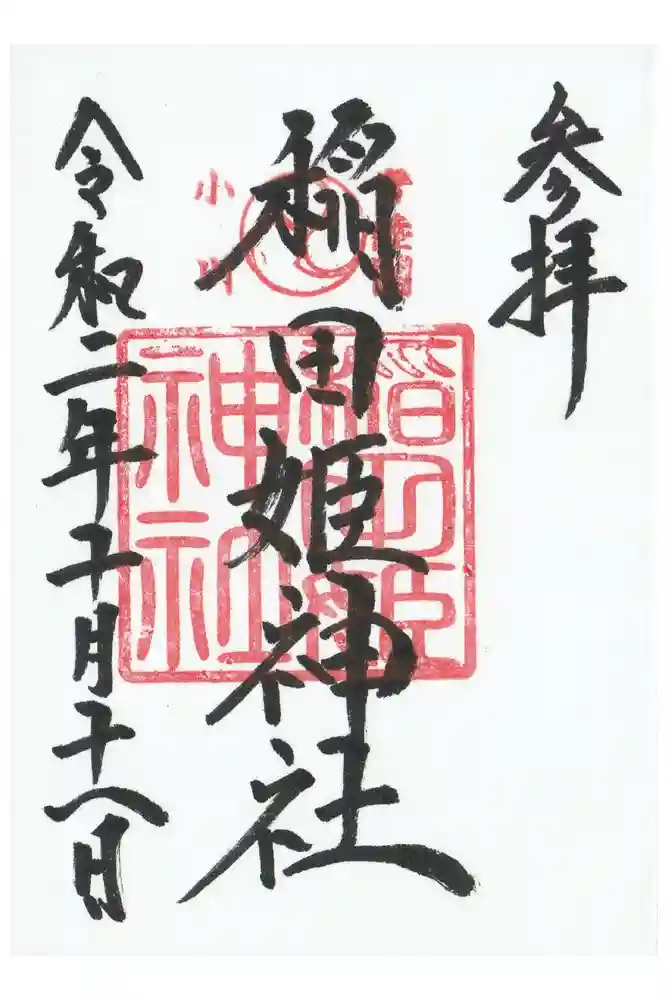 参拝
稲田姫神社
稲田姫
神社
小川
令和二年十月十八日